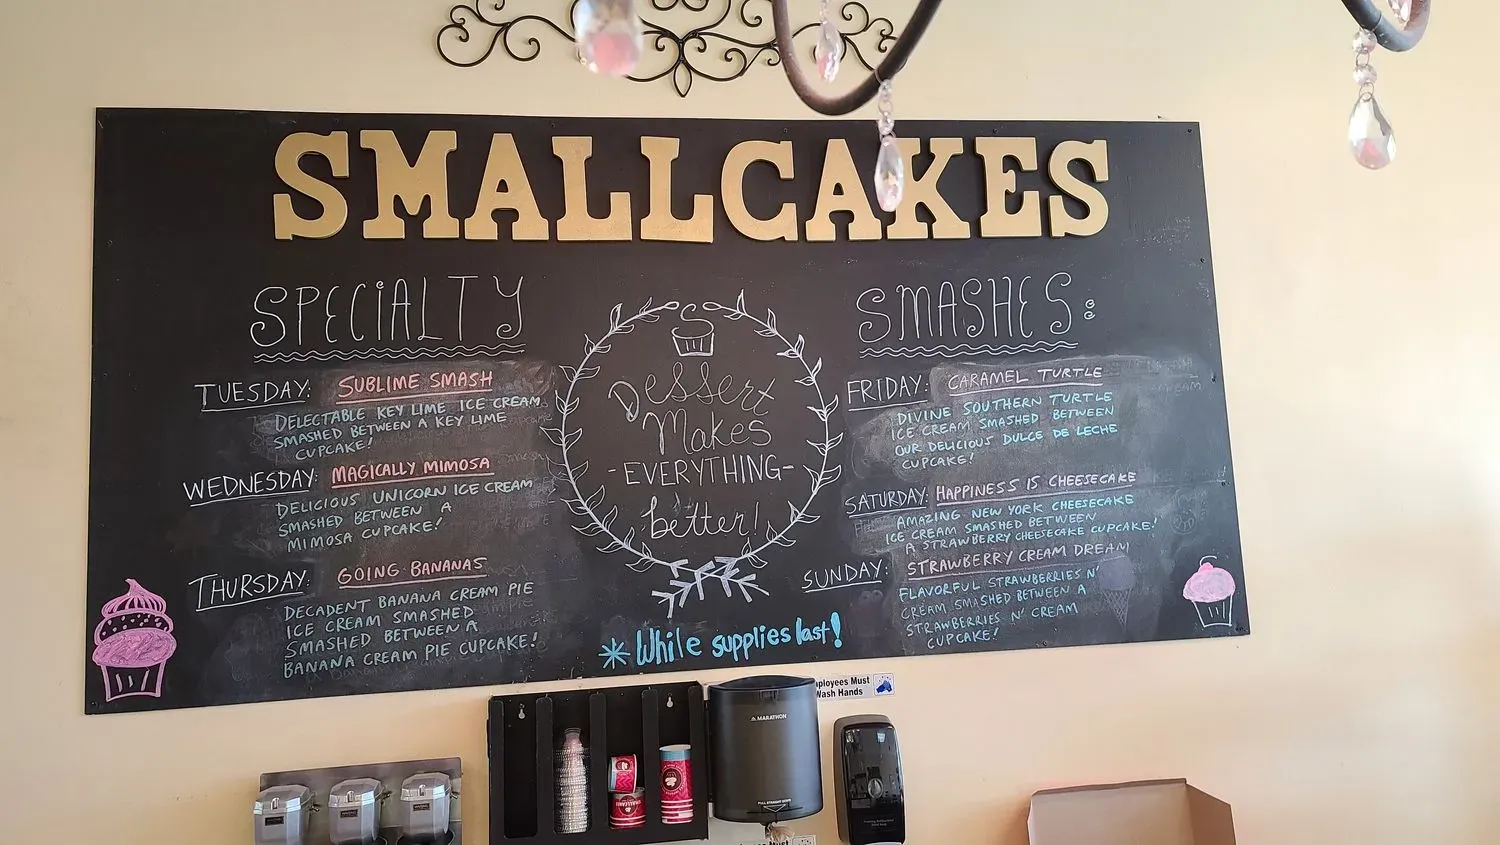 SMALLCAKES
SPECIALTY
TUESDAY: SUBLIME SMASH
DELECTABLE KEY LIME ICE CREAM
SMASHED BETWEEN A KEY LIME
CUPCAKE!
WEDNESDAY: MAGICALLY MIMOSA
DELICIOUS UNICORN ICE CREAM
SMASHED BETWEEN A
MIMOSA CUPCAKE!
THURSDAY: GOING BANANAS
DECADENT BANANA CREAM PIE
ICE CREAM SMASHED
SMASHED BETWEEN A
BANANA CREAM PIE CUPCAKE!
Dessert
Makes
-EVERYTHING-
better!
*While supplies last!
SMASHES:
FRIDAY: CARAMEL TURTLE
DIVINE SOUTHERN TURTLE
ICE CREAM SMASHED BETWEEN
OUR DELICIOUS DULCE DE LECHE
CUPCAKE!
SATURDAY: HAPPINESS IS CHEESECAKE
AMAZING NEW YORK CHEESECAKE
ICE CREAM SMASHED BETWEEN
A STRAWBERRY CHEESECAKE CUPCAKE!
SUNDAY: STRAWBERRY CREAM DREAM
FLAVORFUL STRAWBERRIES N'
CREAM SMASHED BETWEEN A
STRAWBERRIES N' CREAM
CUPCAKE!
Employees Must
Wash Hands
MARATHON